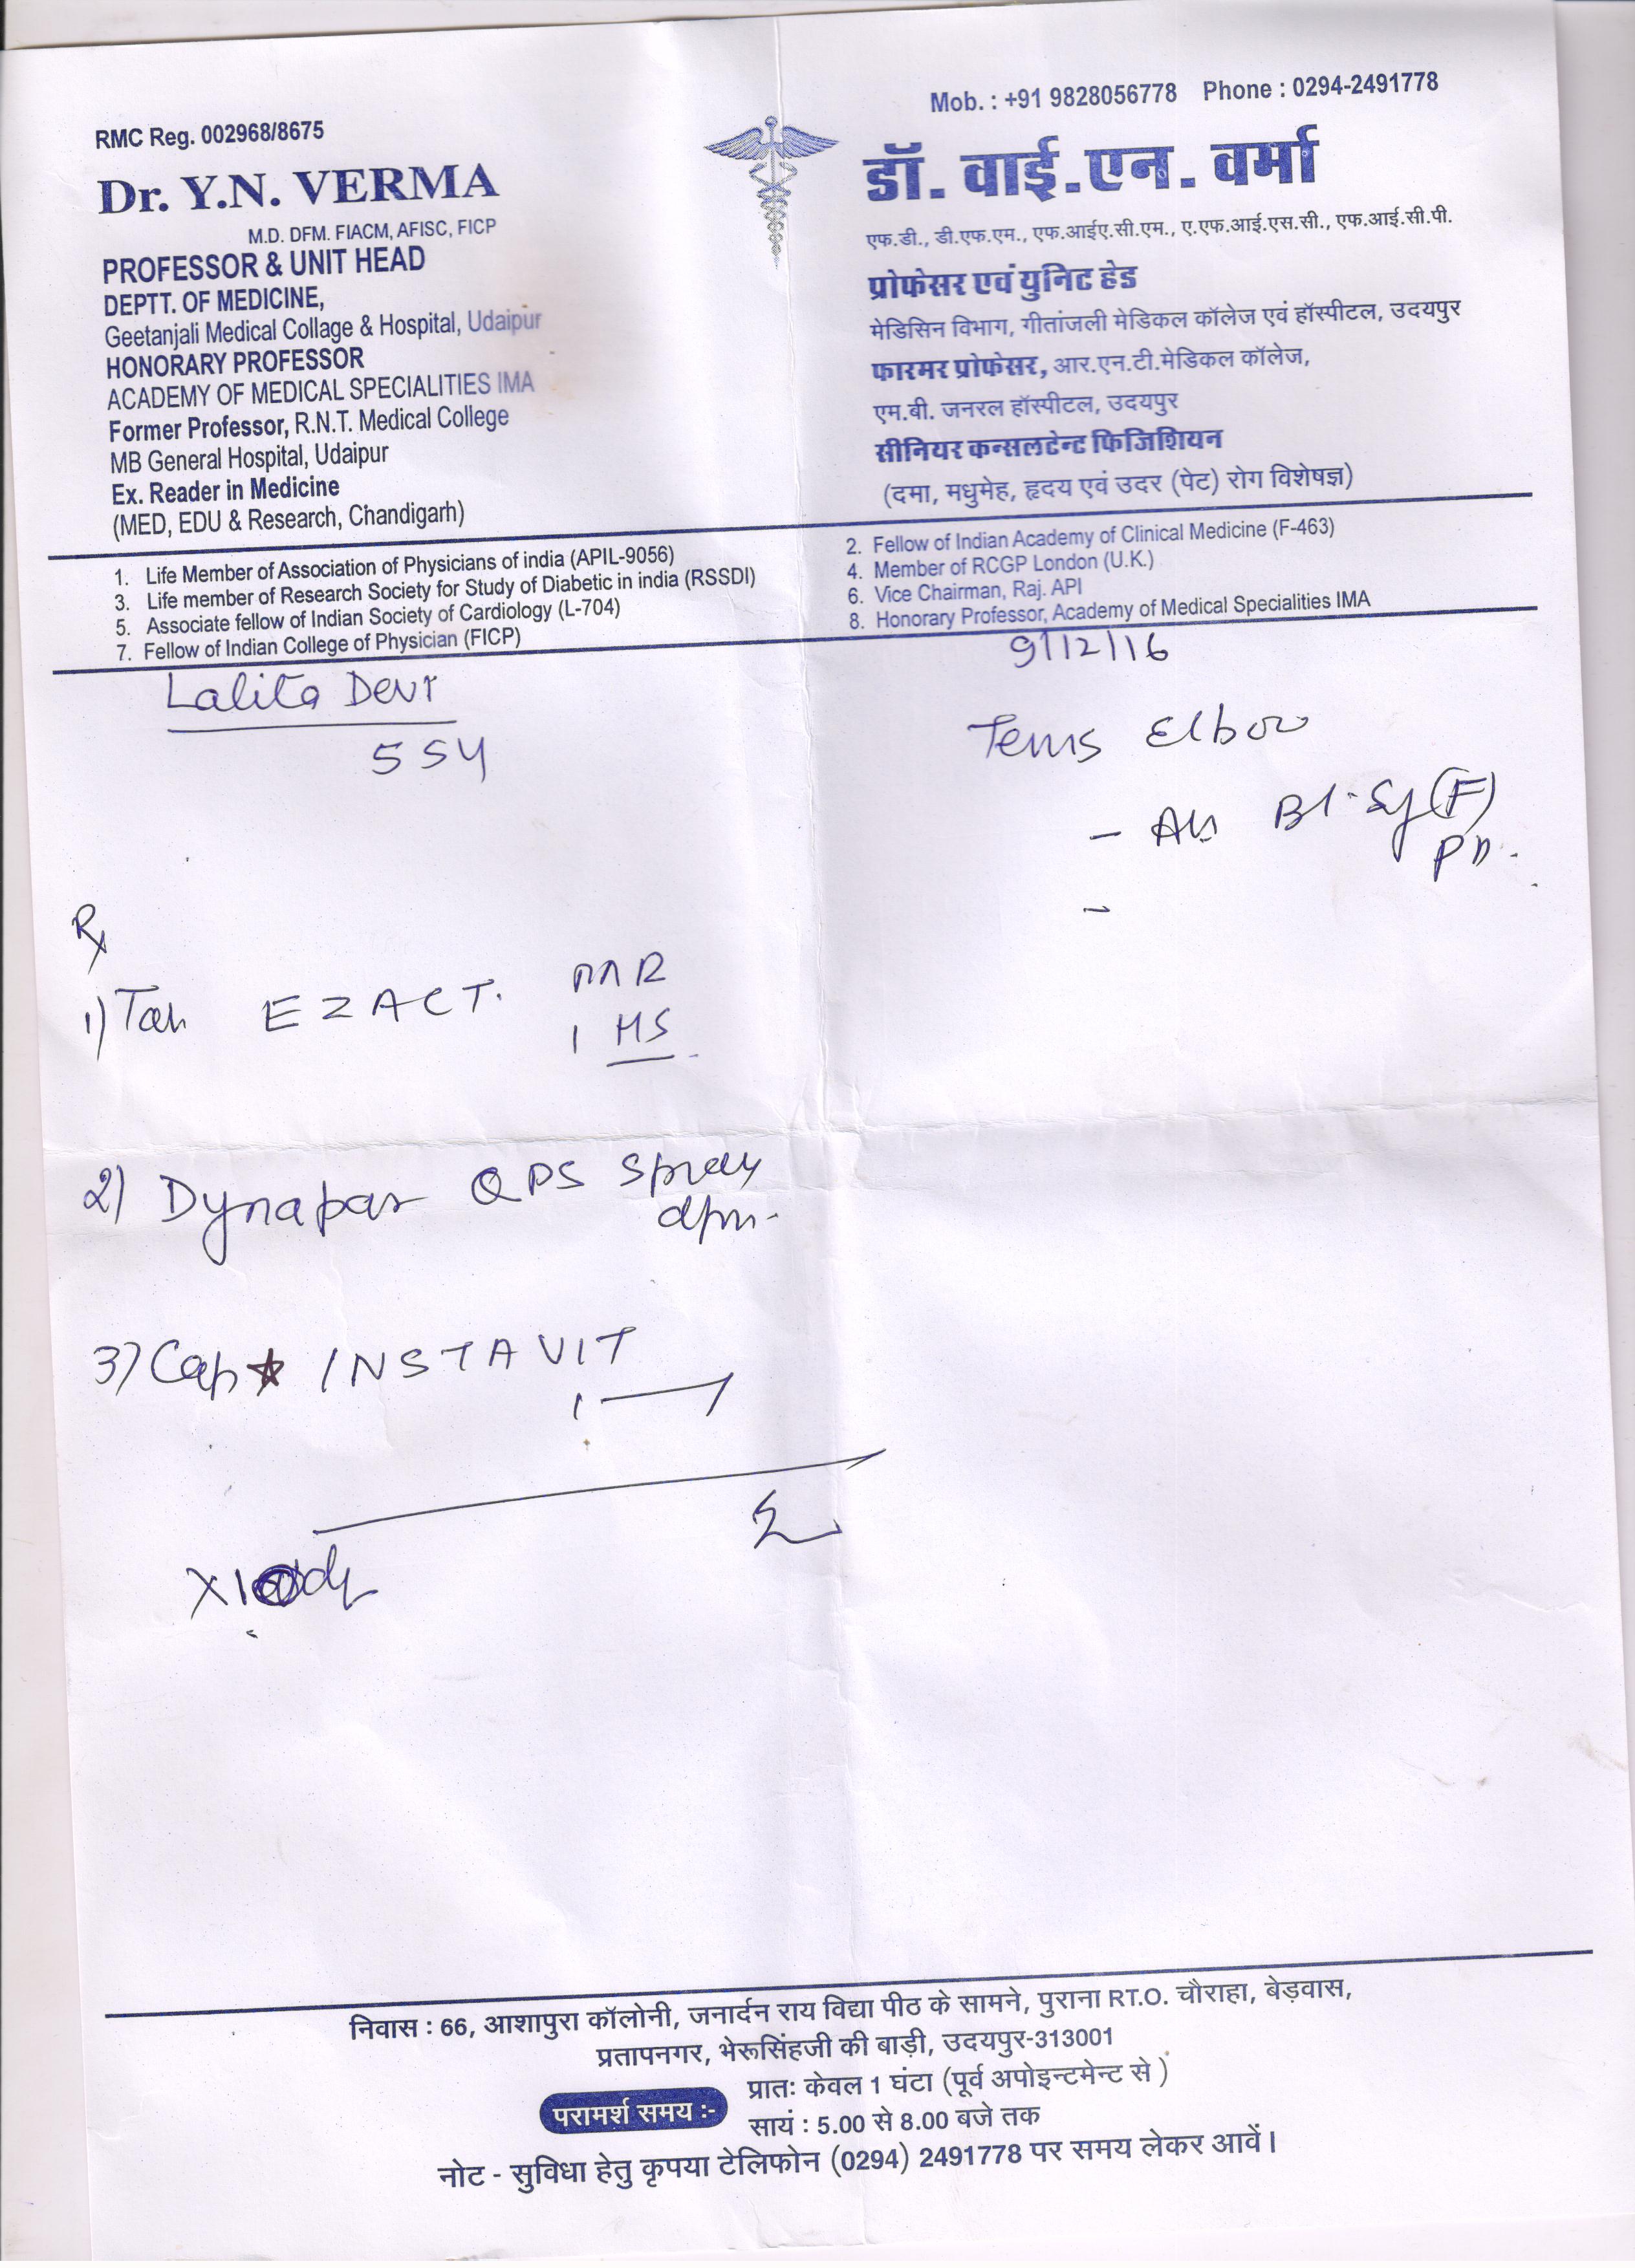 Mob. : +91 9828056778 Phone : 0294-2491778
RMC Reg. 002968/8675
Dr. Y.N. VERMA
M.D. DFM. FIACM, AFISC, FICP
PROFESSOR & UNIT HEAD
DEPTT. OF MEDICINE,
Geetanjali Medical Collage & Hospital, Udaipur
HONORARY PROFESSOR
ACADEMY OF MEDICAL SPECIALITIES IMA
Former Professor, R.N.T. Medical College
MB General Hospital, Udaipur
Ex. Reader in Medicine
(MED, EDU & Research, Chandigarh)
डॉ. वाई.एन. वर्मा
एफ.डी., डी.एफ.एम., एफ.आईए.सी.एम., ए.एफ.आई.एस.सी., एफ.आई.सी.पी.
प्रोफेसर एवं युनिट हेड
मेडिसिन विभाग, गीतांजली मेडिकल कॉलेज एवं हॉस्पीटल, उदयपुर
फारमर प्रोफेसर, आर.एन.टी.मेडिकल कॉलेज,
एम.बी. जनरल हॉस्पीटल, उदयपुर
सीनियर कन्सलटेन्ट फिजिशियन
(दमा, मधुमेह, हृदय एवं उदर (पेट) रोग विशेषज्ञ)
1. Life Member of Association of Physicians of india (APIL-9056)
2. Fellow of Indian Academy of Clinical Medicine (F-463)
3. Life member of Research Society for Study of Diabetic in india (RSSDI)
4. Member of RCGP London (U.K.)
5. Associate fellow of Indian Society of Cardiology (L-704)
6. Vice Chairman, Raj. API
7. Fellow of Indian College of Physician (FICP)
8. Honorary Professor, Academy of Medical Specialities IMA
9/12/16
Lalita Devi
55y
Elbow
Bl. (F)
Rx
1) Tab EZACT. MR
1 HS
2) Dynapar QPS spray
3) Cap INSTAVIT
1
X10d
निवास : 66, आशापुरा कॉलोनी, जनार्दन राय विद्या पीठ के सामने, पुराना RT.O. चौराहा, बेड़वास,
प्रतापनगर, भेरूसिंहजी की बाड़ी, उदयपुर-313001
परामर्श समय :- प्रातः केवल 1 घंटा (पूर्व अपोइन्टमेन्ट से )
सायं : 5.00 से 8.00 बजे तक
नोट - सुविधा हेतु कृपया टेलिफोन (0294) 2491778 पर समय लेकर आवें।